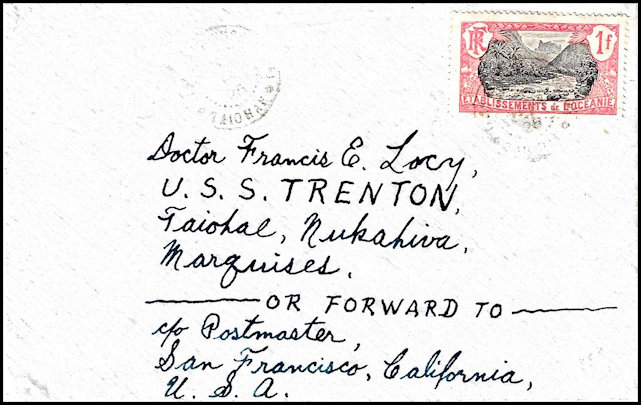 RF 1f
ÉTABLISSEMENTS de L'OCÉANIE
Doctor Francis E. Locy,
U. S. S. TRENTON,
Taiohae, Nukahiva,
Marquises.
OR FORWARD TO
c/o Postmaster,
San Francisco, California,
U. S. A.